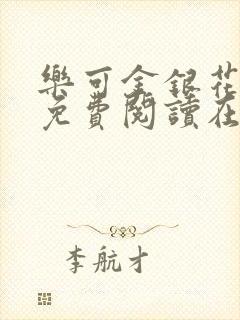 樂可金銀花
免費閱讀在
李航才